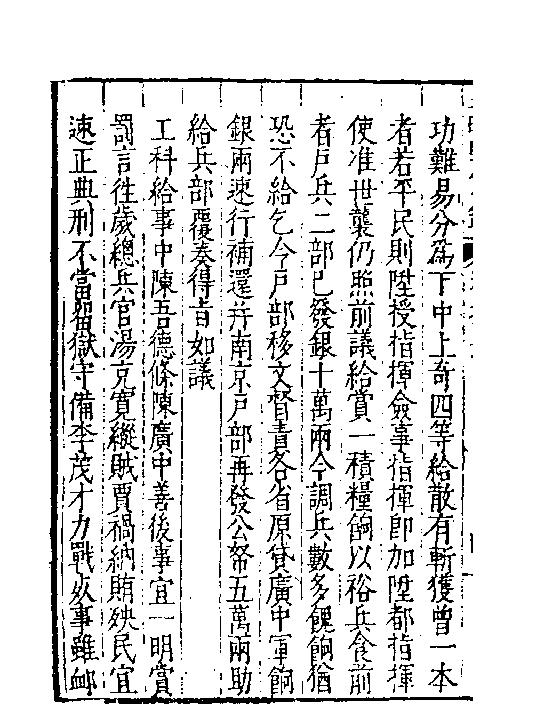 功難易分爲下中上奇四等給散有斬獲曾一本
者若平民則陞授指揮僉事指揮即加陞都指揮
使准世襲仍照前議給賞一積糧餉以裕兵食前
者戶兵二部已發銀十萬兩今調兵數多餽餉猶
恐不給乞令戶部移文督責各省原貸廣中軍餉
銀兩速行補還并南京戶部再發公帑五萬兩助
給兵部覆奏得旨如議
工科給事中陳吾德條陳廣中善後事宜一明賞
罰言徃歲總兵官湯克寬縱賊賈禍納賄殃民宜
速正典刑不當留獄守備李茂才力戰歿事雖䘏